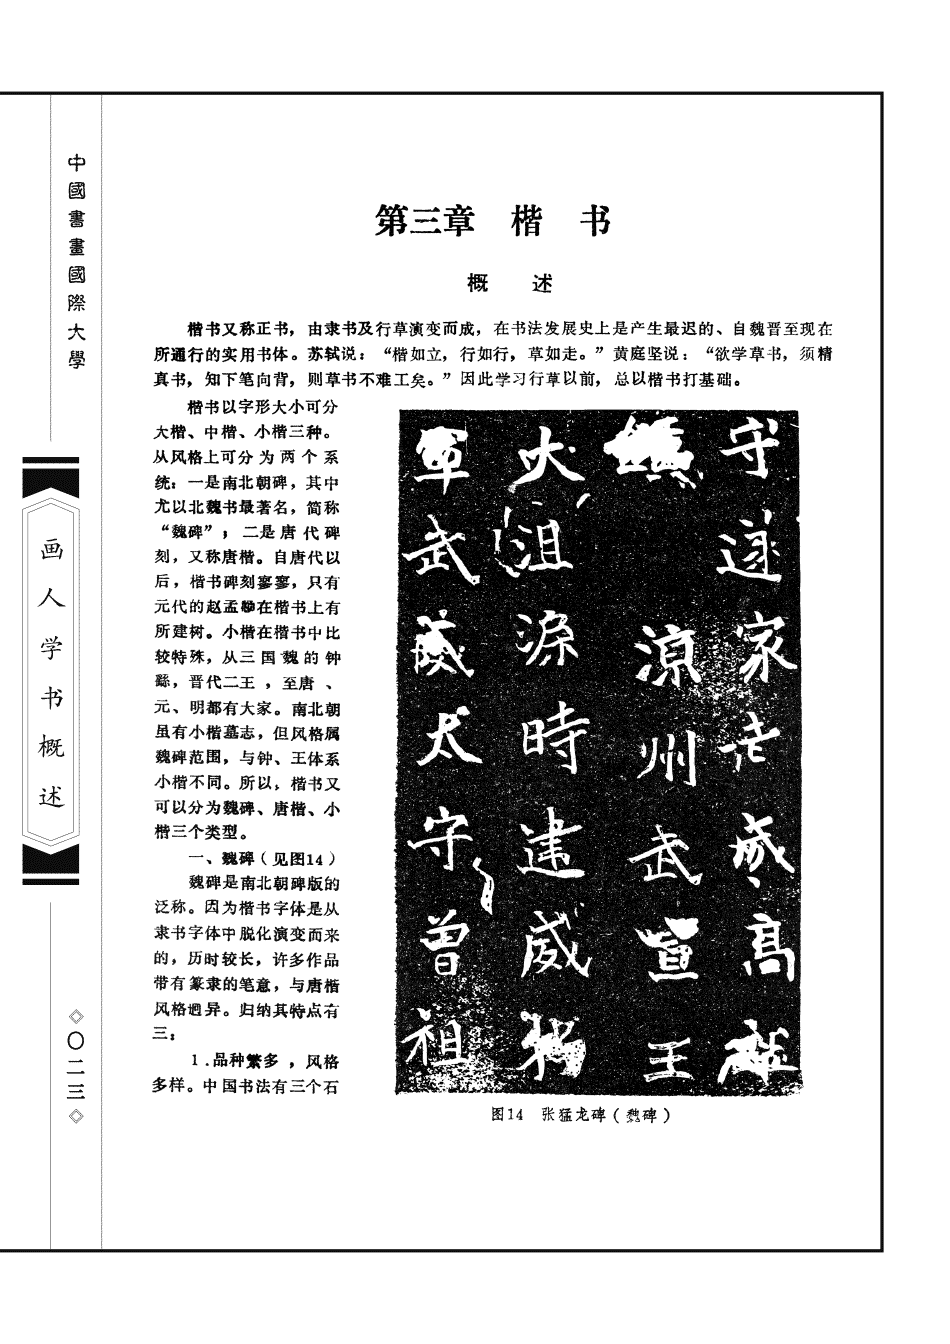 中國書畫國際大學
画人学书概述
◇〇二三◇
第三章 楷 书
概 述
楷书又称正书，由隶书及行草演变而成，在书法发展史上是产生最迟的、自魏晋至现在
所通行的实用书体。苏轼说：“楷如立，行如行，草如走。”黄庭坚说：“欲学草书，须精
真书，知下笔向背，则草书不难工矣。”因此学习行草以前，总以楷书打基础。
楷书以字形大小可分
大楷、中楷、小楷三种。
从风格上可分为两个系
统：一是南北朝碑，其中
尤以北魏书最著名，简称
“魏碑”；二是唐代碑
刻，又称唐楷。自唐代以
后，楷书碑刻寥寥，只有
元代的赵孟在楷书上有
所建树。小楷在楷书中比
较特殊，从三国魏的钟
繇，晋代二王，至唐、
元、明都有大家。南北朝
虽有小楷墓志，但风格属
魏碑范围，与钟、王体系
小楷不同。所以，楷书又
可以分为魏碑、唐楷、小
楷三个类型。
一、魏碑（见图14）
魏碑是南北朝碑版的
泛称。因为楷书字体是从
隶书字体中脱化演变而来
的，历时较长，许多作品
带有篆隶的笔意，与唐楷
风格迥异。归纳其特点有
三：
1.品种繁多，风格
多样。中国书法有三个石
守遂家士咸高
涼州武宣王
大沮渠時建威
軍武威太守曾祖
图14 张猛龙碑（魏碑）